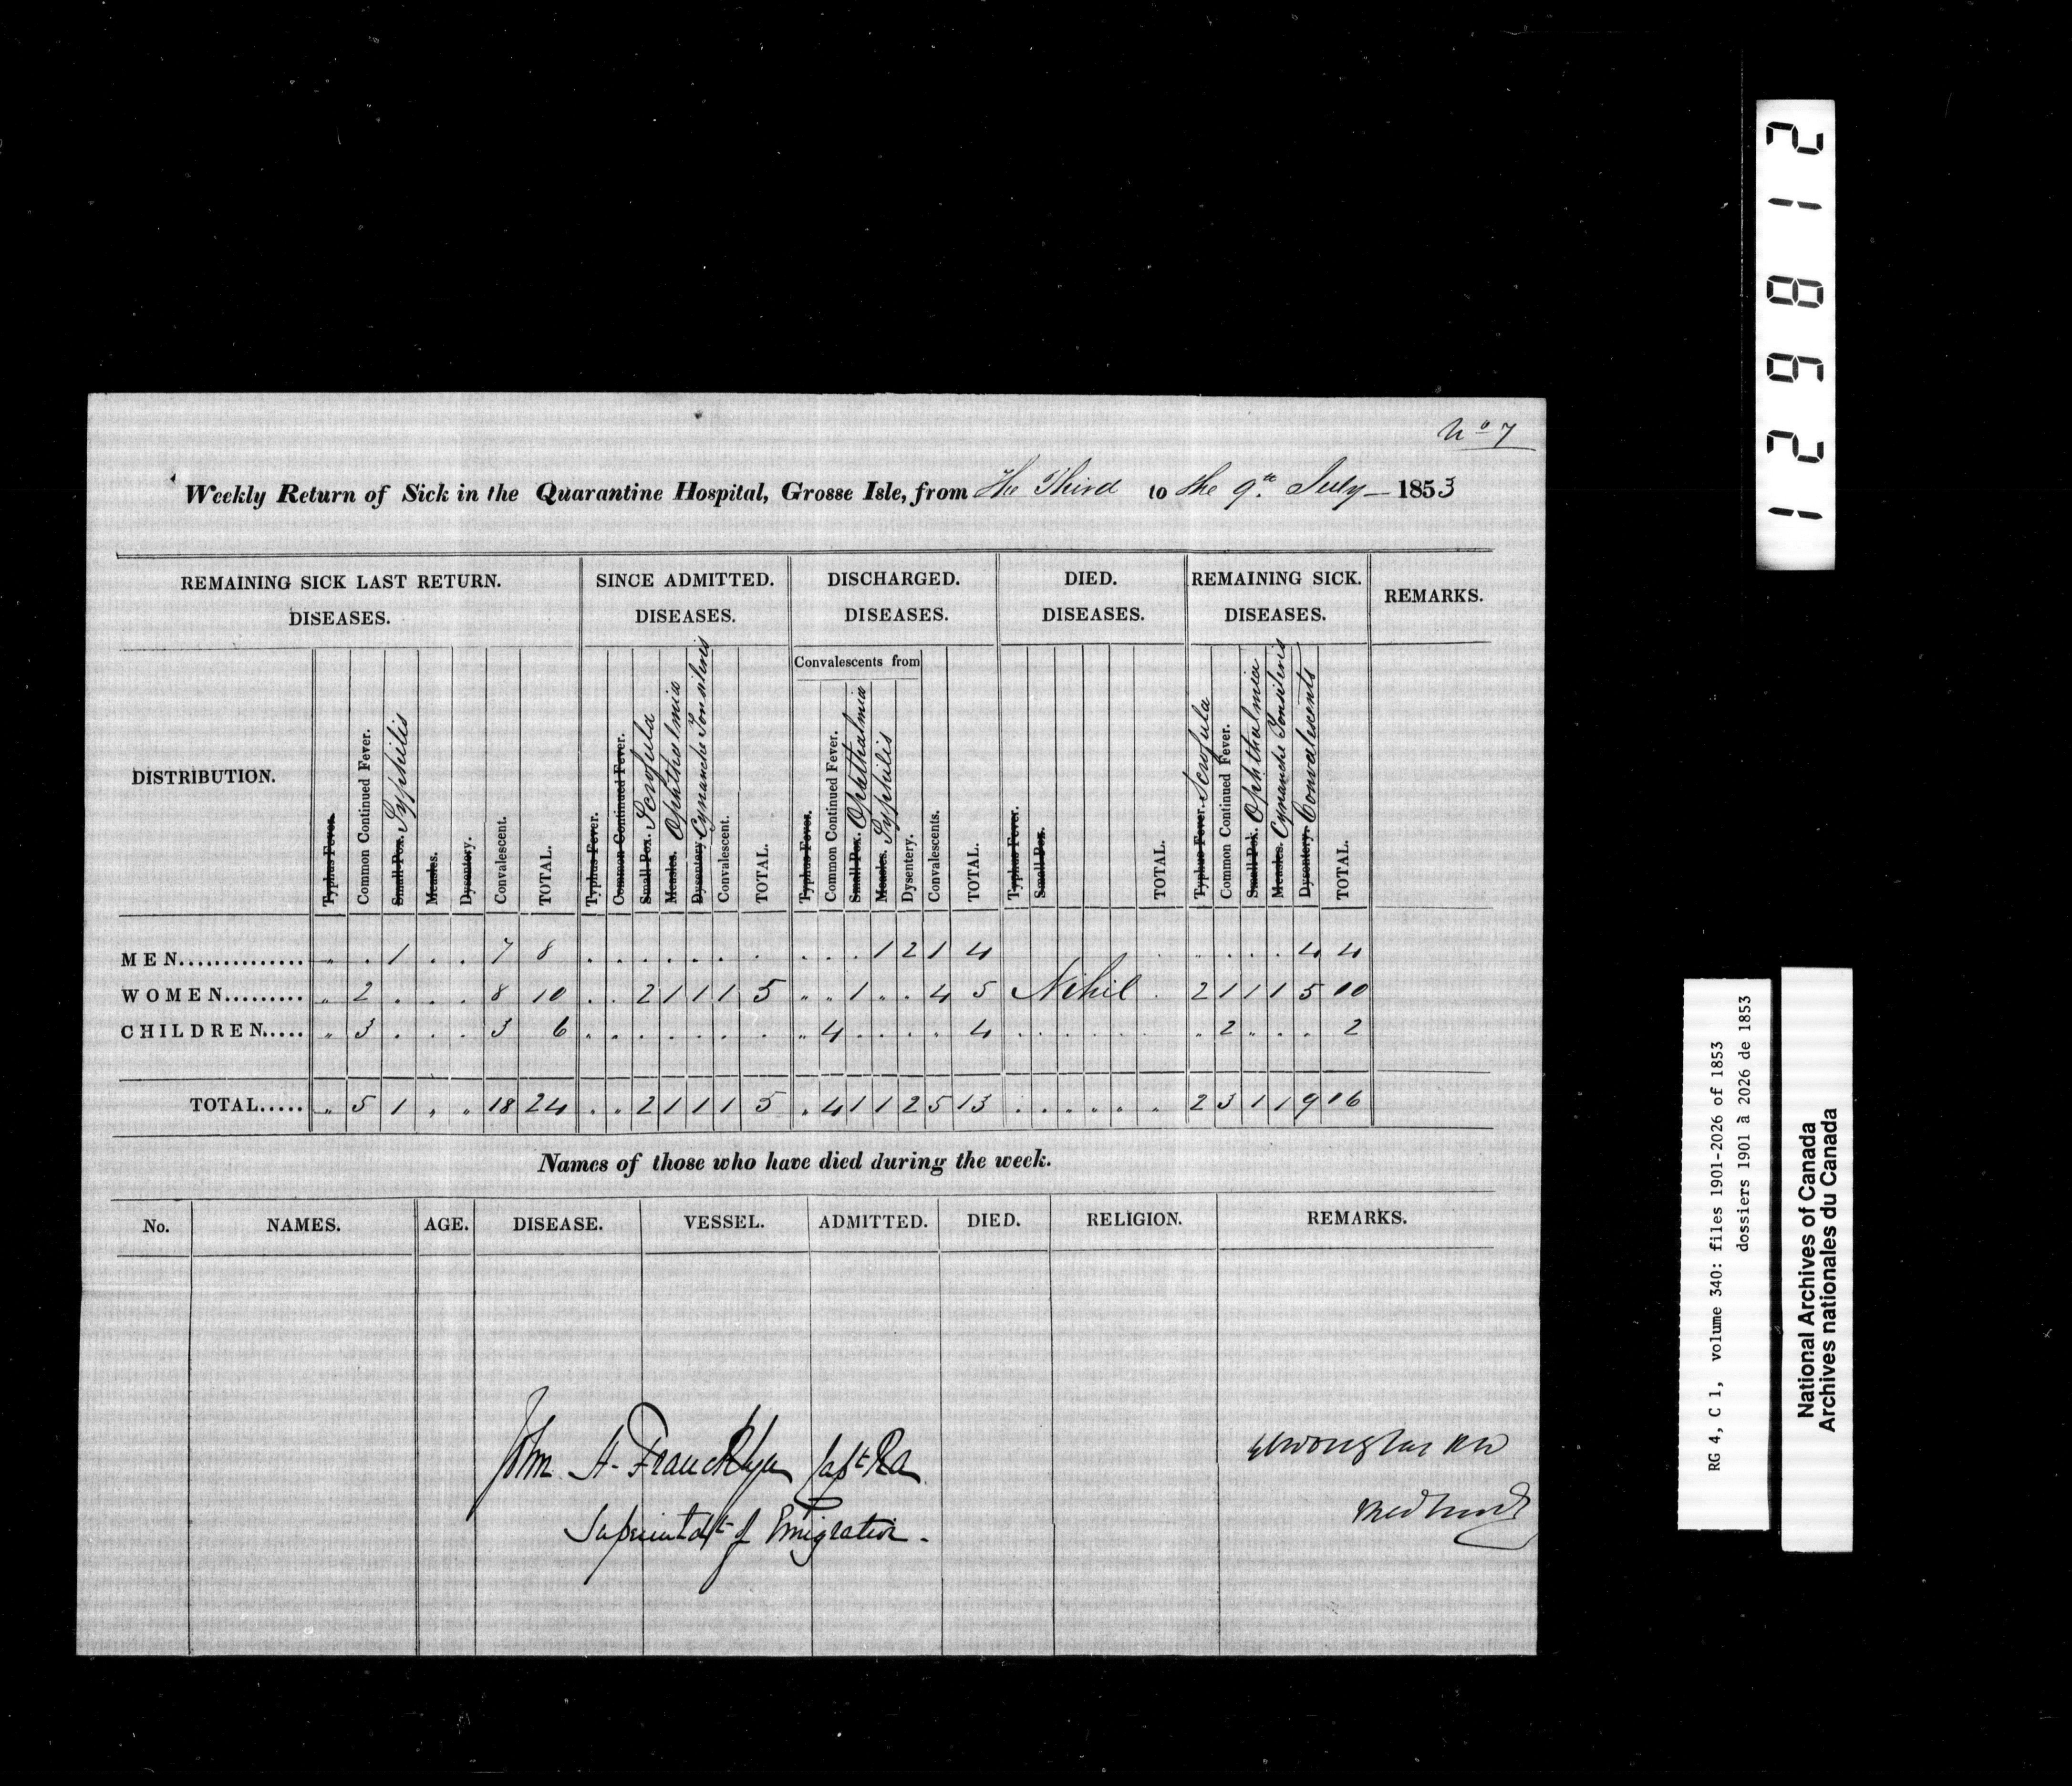 No 7
Weekly Return of Sick in the Quarantine Hospital, Grosse Isle, from The Third to the 9th July — 1853
REMAINING SICK LAST RETURN. SINCE ADMITTED. DISCHARGED. DIED. REMAINING SICK. REMARKS.
DISEASES. DISEASES. DISEASES. DISEASES. DISEASES.
Convalescents from
DISTRIBUTION.
Typhus Fever.
Common Continued Fever.
Small Pox. Syphilis
Measles.
Dysentery.
Convalescent.
TOTAL.
Typhus Fever.
Common Continued Fever.
Small Pox. Scrofula
Measles. Ophthalmia
Dysentery Cynanche Tonsileris
Convalescent.
TOTAL.
Typhus Fever.
Common Continued Fever.
Small Pox. Ophthalmia
Measles. Syphilis
Dysentery.
Convalescents.
TOTAL.
Typhus Fever.
Small Pox.
TOTAL.
Typhus Fever. Scrofula
Common Continued Fever.
Small Pox. Ophthalmia
Measles. Cynanche Tonsileris
Dysentery. Convalescents
TOTAL.
MEN.............. „ . 1 . . 7 8 . . . . . . . . . . 1 2 1 4 . . . . 4 4
WOMEN......... „ 2 . . . 8 10 . . 2 1 1 1 5 „ „ 1 „ . 4 5 Nihil . 2 1 1 1 5 10
CHILDREN..... „ 3 . . . 3 6 . . . . . . . „ 4 . . . . 4 . . . . . . . 2 „ . . 2
TOTAL..... „ 5 1 „ „ 18 24 . . 2 1 1 1 5 . 4 1 1 2 5 13 . . . . . . 2 3 1 1 9 16
Names of those who have died during the week.
No. NAMES. AGE. DISEASE. VESSEL. ADMITTED. DIED. RELIGION. REMARKS.
John A. Francklyn Capt RA
Superintdt of Emigration.
Med Supdt
129812
RG 4, C 1, volume 340: files 1901-2026 of 1853
dossiers 1901 à 2026 de 1853
National Archives of Canada
Archives nationales du Canada